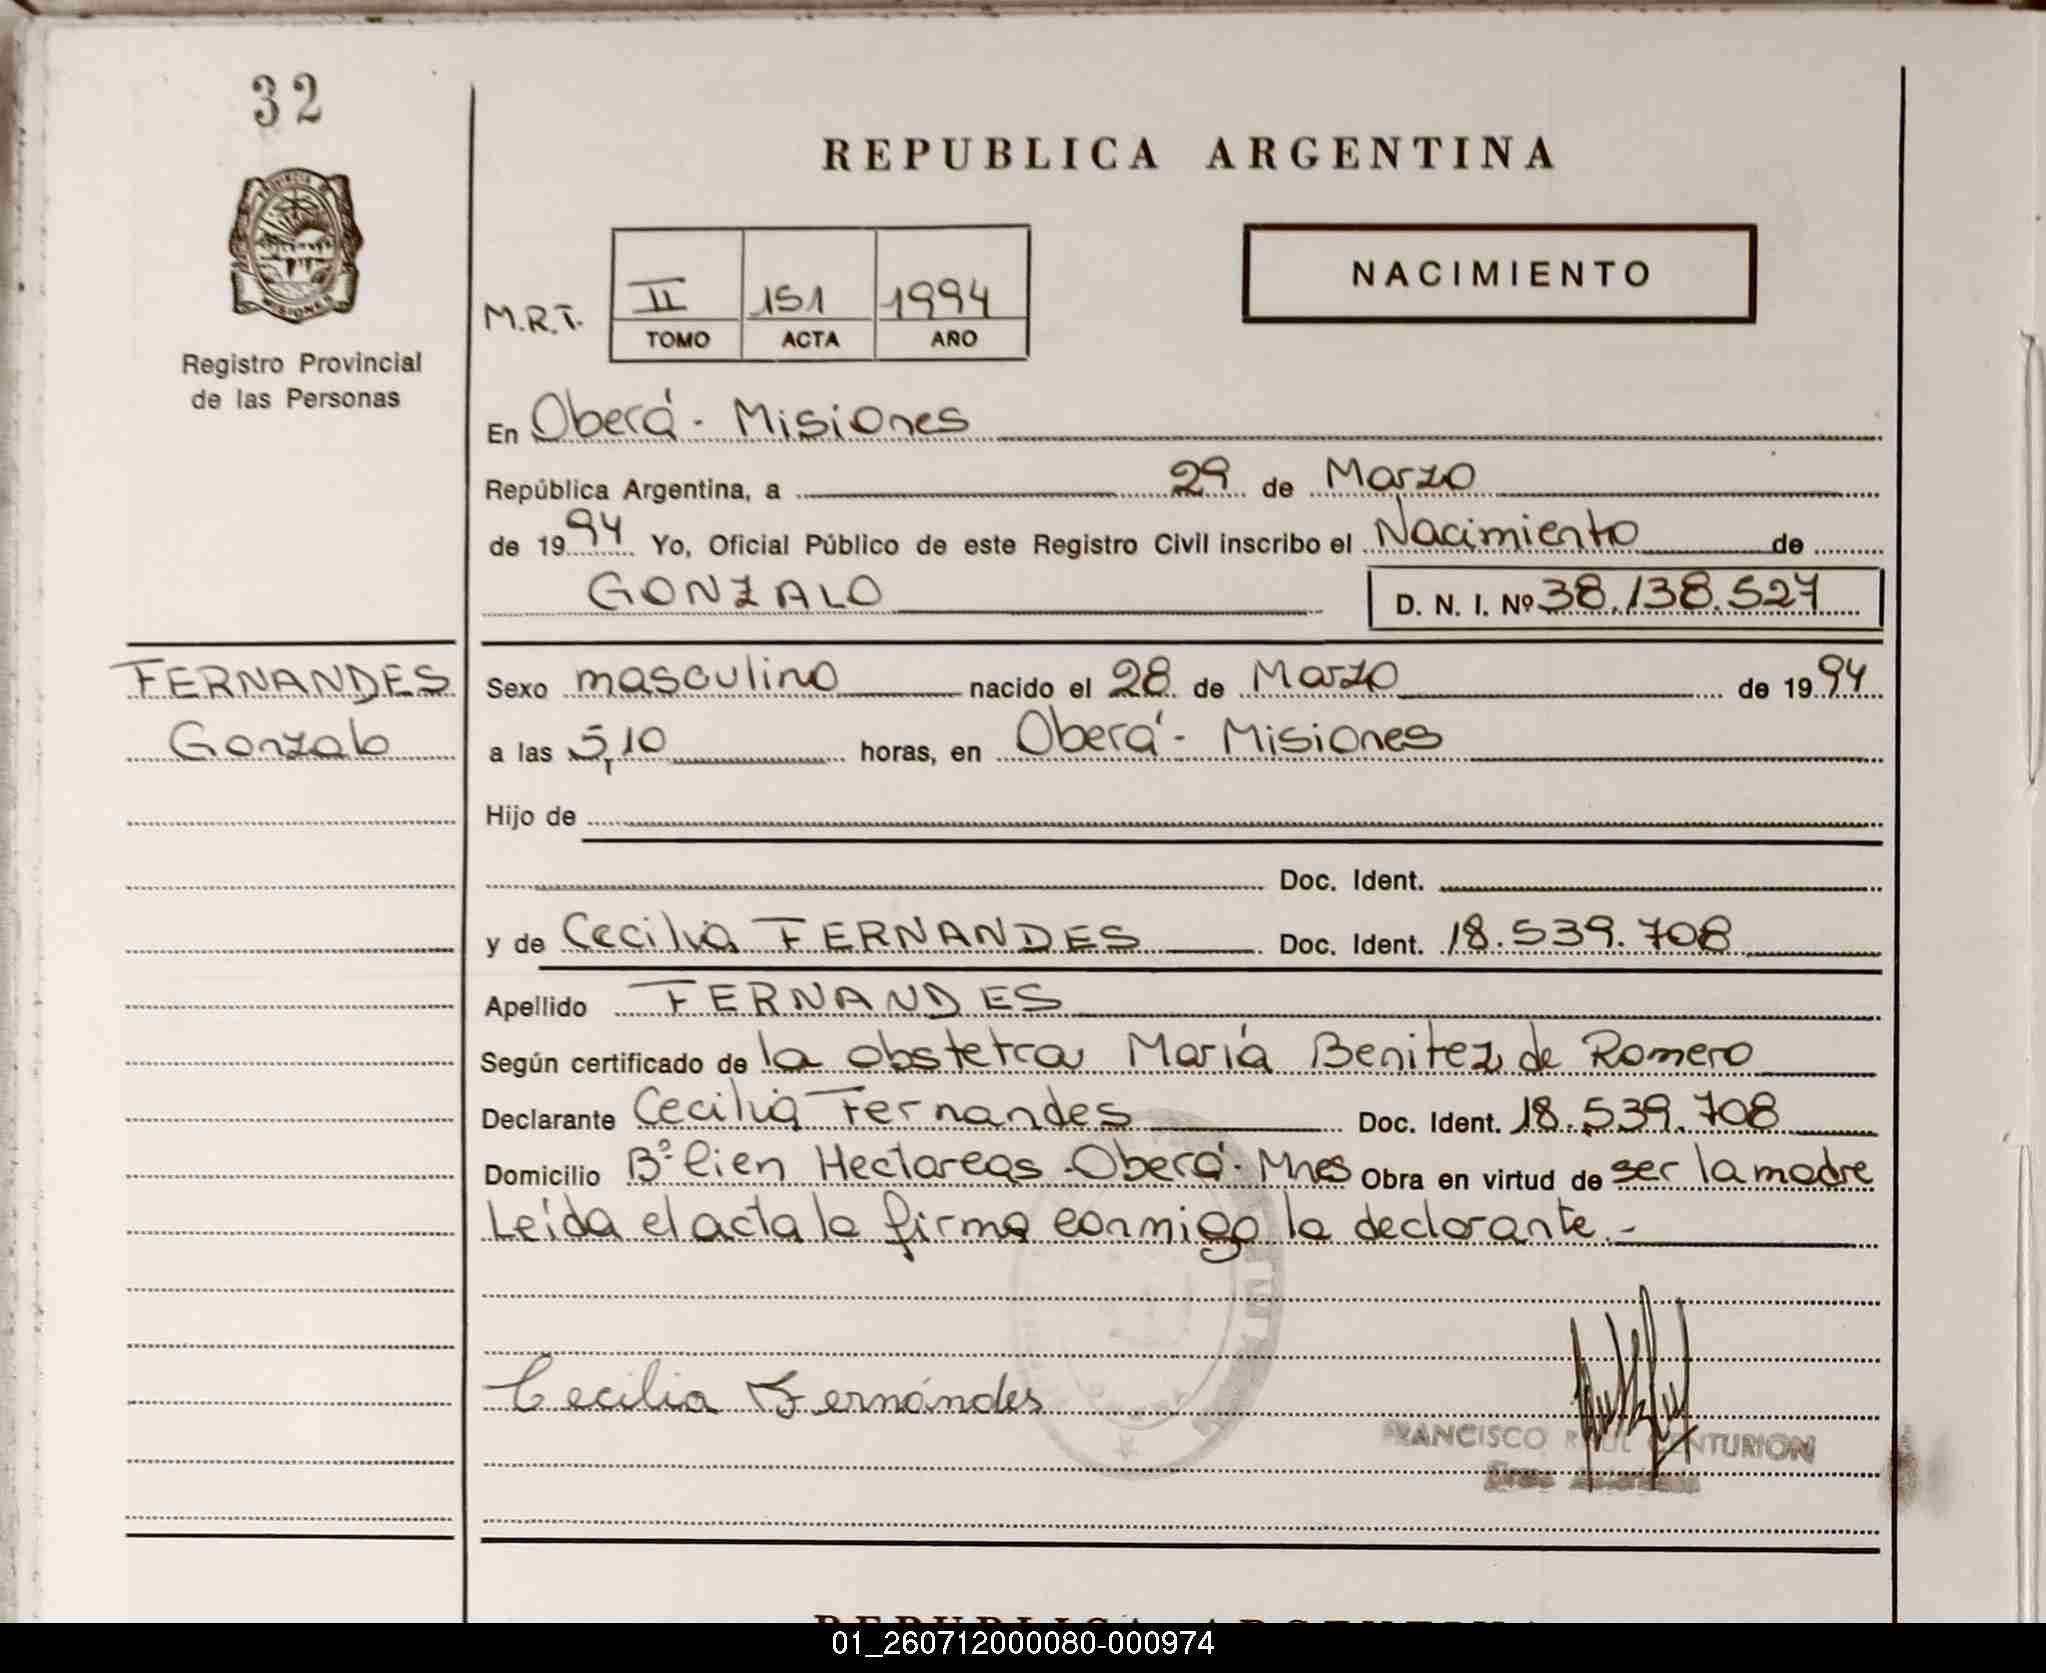 32
PROVINCIA DE
MISIONES
Registro Provincial
de las Personas
REPUBLICA ARGENTINA
NACIMIENTO
M.R.T.
II 151 1994
TOMO ACTA AÑO
En Oberá - Misiones
República Argentina, a 29 de Marzo
de 1994 Yo, Oficial Público de este Registro Civil inscribo el Nacimiento de
GONZALO D. N. I. Nº 38.138.527
FERNANDES
Gonzalo
Sexo masculino nacido el 28 de Marzo de 1994
a las 5,10 horas, en Oberá - Misiones
Hijo de
Doc. Ident.
y de Cecilia FERNANDES Doc. Ident. 18.539.708
Apellido FERNANDES
Según certificado de la obstetra María Benitez de Romero
Declarante Cecilia Fernandes Doc. Ident. 18.539.708
Domicilio Bº Cien Hectareas - Oberá - Mnes Obra en virtud de ser la madre
Leída el acta la firma conmigo la declarante.-
Cecilia Fernándes
FRANCISCO RAUL CENTURION
REPUBLICA ARGENTINA
01_260712000080-000974